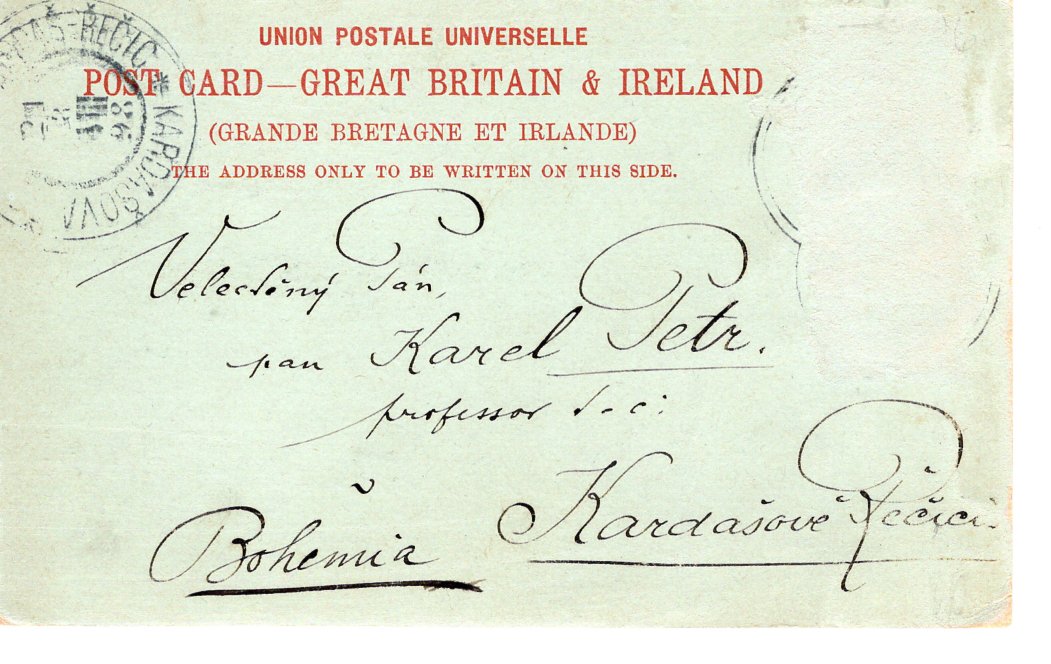 UNION POSTALE UNIVERSELLE
POST CARD—GREAT BRITAIN & IRELAND
(GRANDE BRETAGNE ET IRLANDE)
THE ADDRESS ONLY TO BE WRITTEN ON THIS SIDE.
ŘEČIC * KARDAŠOVA
Velectěný Pán,
pan Karel Petr.
professor
v
Kardašově Řečici.
Bohemia